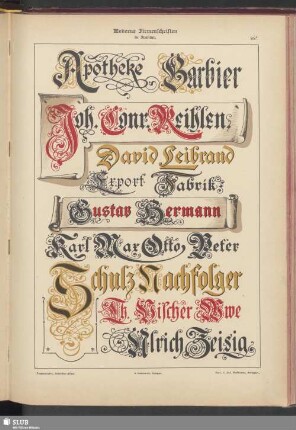 Moderne Firmenschriften
Apotheke Barbier
Joh. Conr. Reihlen
David Leibrand
Export Fabrik
Gustav Hermann
Karl Max Otto, Peter
Schulz Nachfolger
Th. Vischer Wwe
Ulrich Zeisig
SLUB